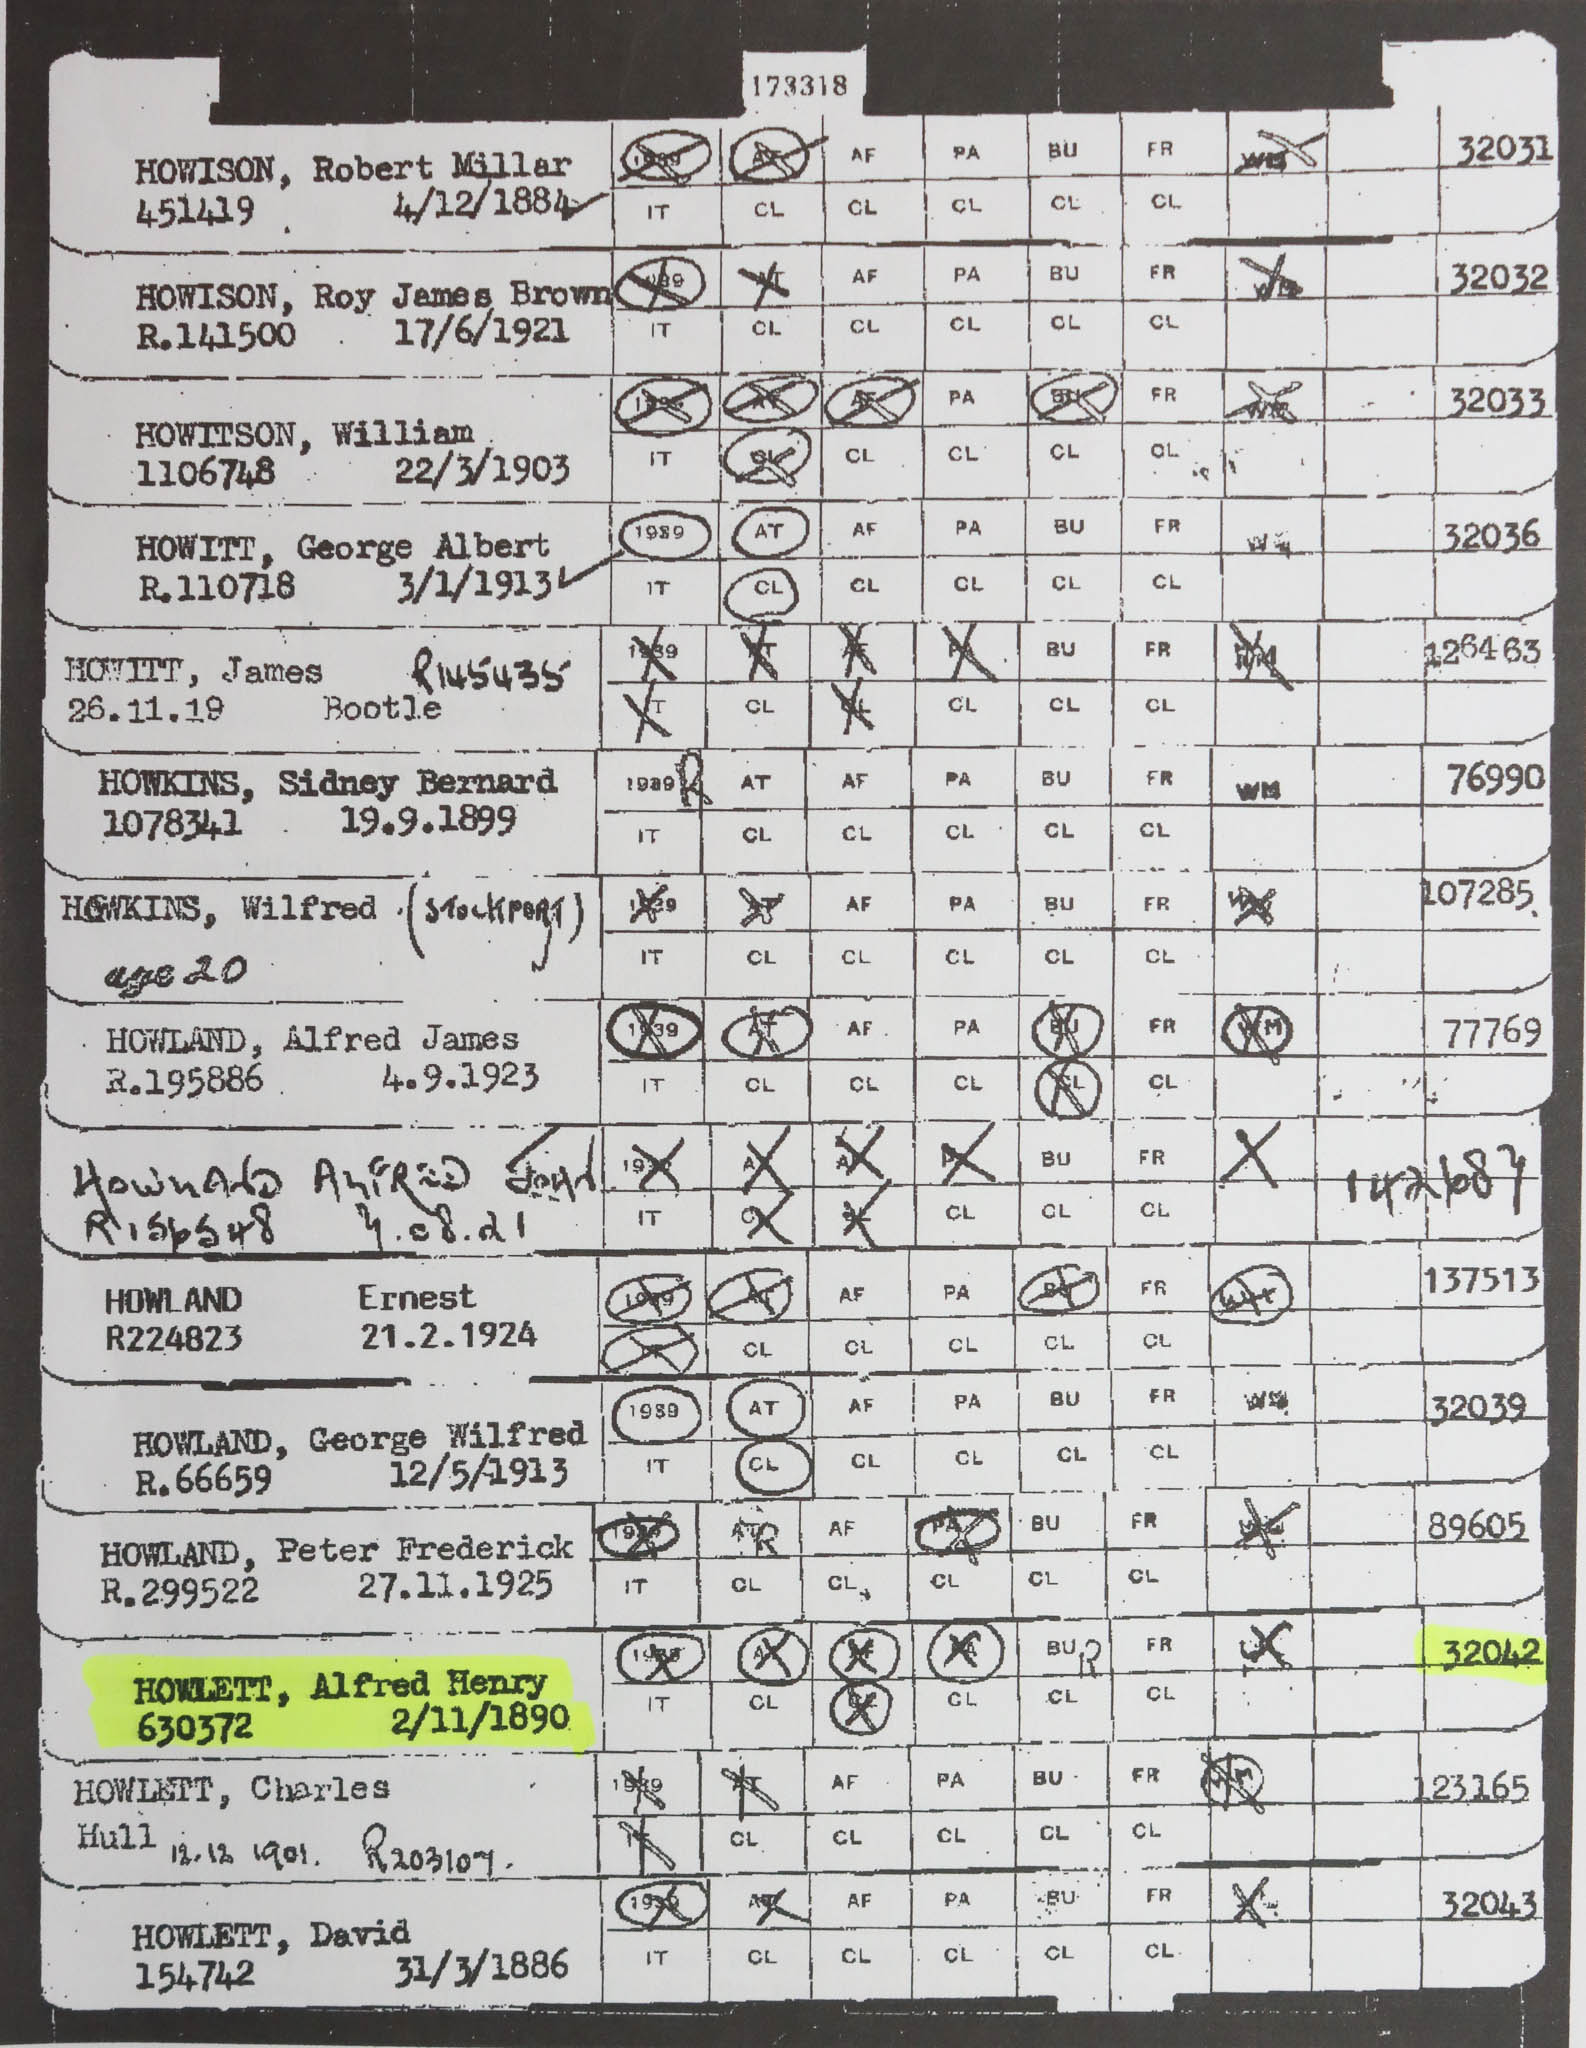 173318
HOWISON, Robert Millar AF PA BU FR WM 32031
451419 4/12/1884 IT CL CL CL CL CL
HOWISON, Roy James Brown 1939 AT AF PA BU FR WM 32032
R.141500 17/6/1921 IT CL CL CL CL CL
HOWITSON, William AF PA BU FR WM 32033
1106748 22/3/1903 IT CL CL CL CL CL
HOWITT, George Albert 1939 AT AF PA BU FR WM 32036
R.110718 3/1/1913 IT CL CL CL CL CL
HOWITT, James R145435 1939 AT AF PA BU FR WM 126463
26.11.19 Bootle IT CL CL CL CL CL
HOWKINS, Sidney Bernard 1939 R AT AF PA BU FR WM 76990
1078341 19.9.1899 IT CL CL CL CL CL
HOWKINS, Wilfred (STOCKPORT) 1939 AT AF PA BU FR WM 107285
age 20 IT CL CL CL CL CL
HOWLAND, Alfred James 1939 AT AF PA BU FR WM 77769
R.195886 4.9.1923 IT CL CL CL CL CL
HOWLAND ALFRED JOHN 1939 AT AF PA BU FR
IT CL CL CL CL CL
HOWLAND Ernest 1939 AT AF PA BU FR 137513
R224823 21.2.1924 CL CL CL CL CL
HOWLAND, George Wilfred 1939 AT AF PA BU FR WM 32039
R.66659 12/5/1913 IT CL CL CL CL CL
HOWLAND, Peter Frederick 1939 AT R AF PA BU FR 89605
R.299522 27.11.1925 IT CL CL CL CL CL
HOWLETT, Alfred Henry 1939 AT AF PA BU R FR 32042
630372 2/11/1890 IT CL CL CL CL CL
HOWLETT, Charles 1939 AT AF PA BU FR WM 123165
Hull 12.12 1901. R203107. IT CL CL CL CL CL
HOWLETT, David 1939 AT AF PA BU FR 32043
154742 31/3/1886 IT CL CL CL CL CL